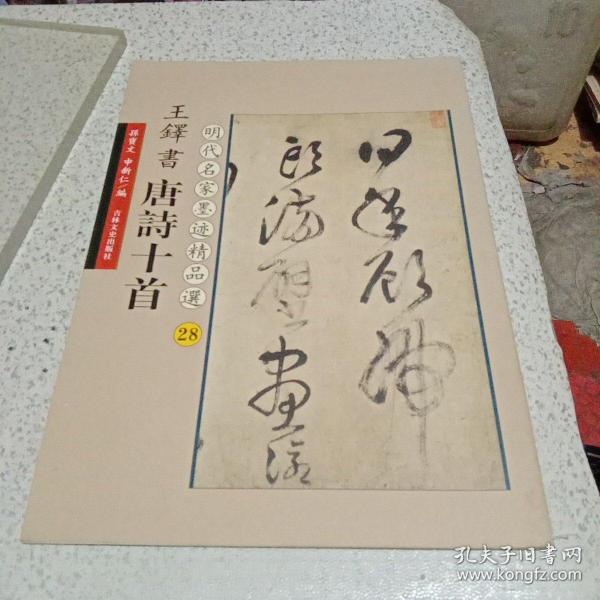 明代名家墨迹精品選
28
王鐸書
唐詩十首
孫寶文 申新仁/編
吉林文史出版社
何年顧虎
頭滿壁畫
孔夫子旧书网
www.kongfz.com